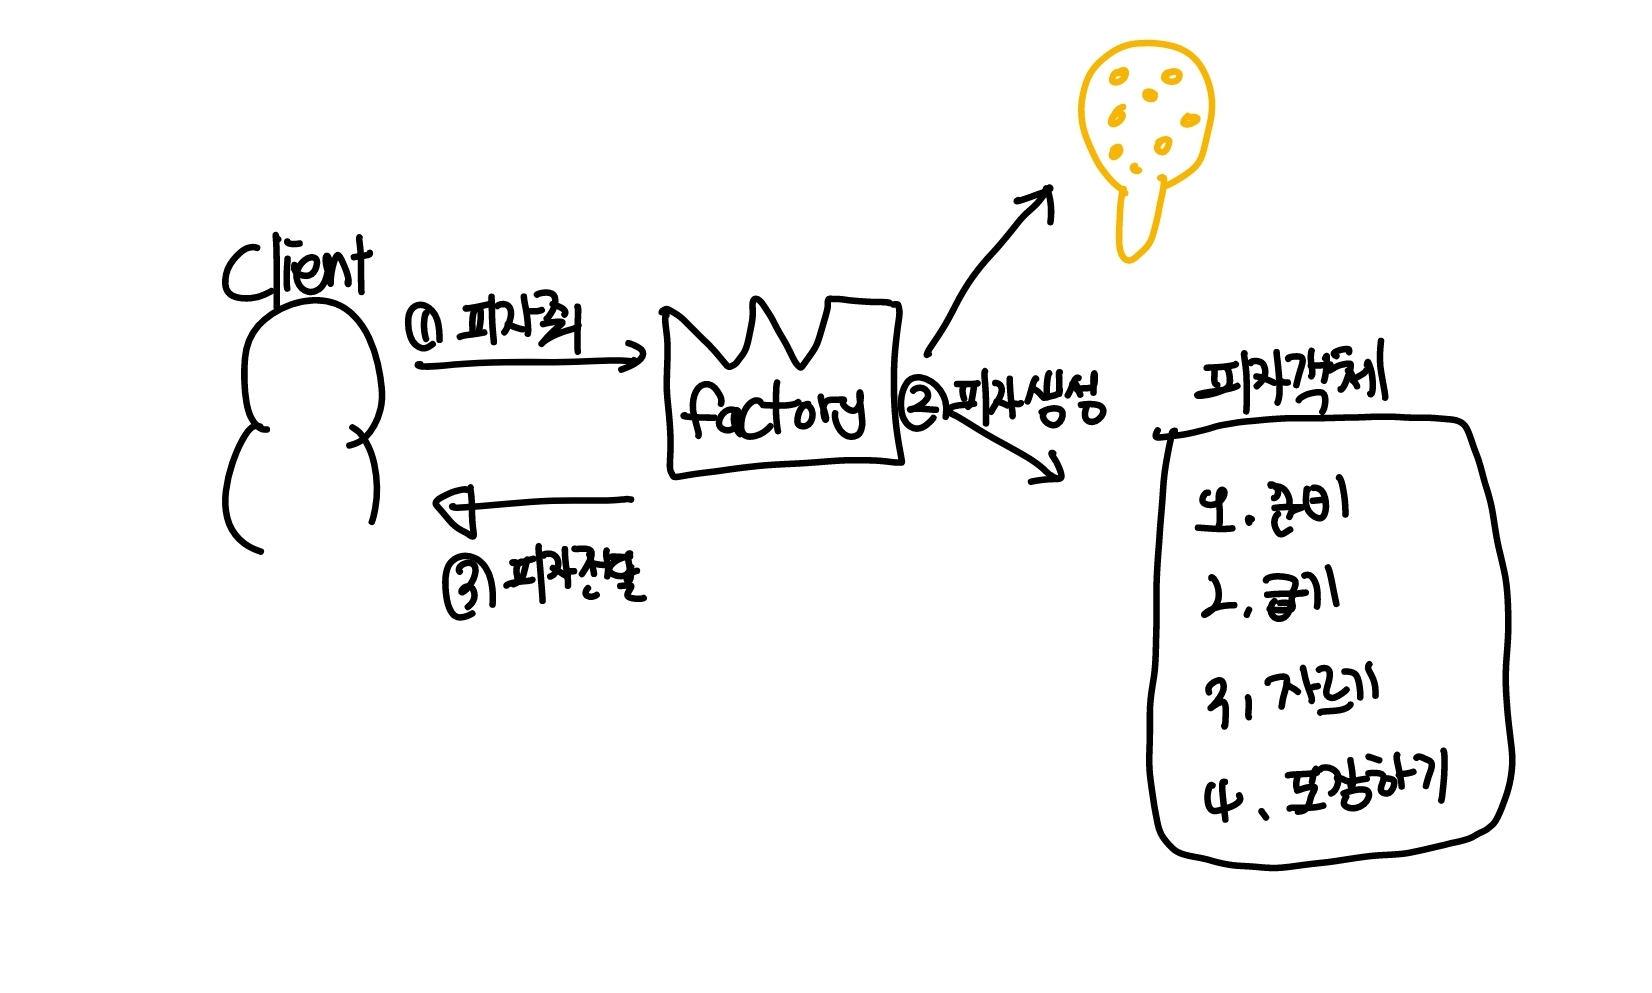 Client
① 피자줘
factory
② 피자생성
③ 피자전달
피자객체
1. 준비
2. 굽기
3. 자르기
4. 포장하기